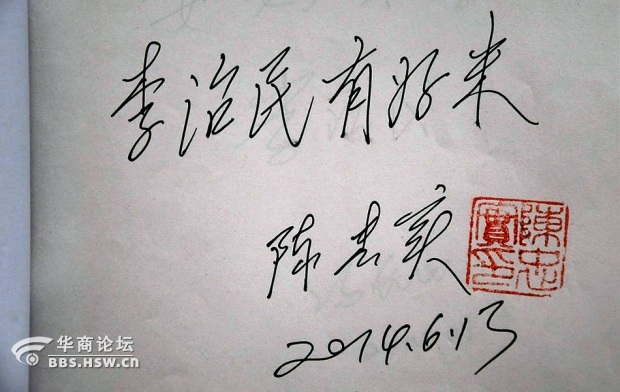 李治民有好米
陈忠实
陳忠
實印
2014.6.13
华商论坛
BBS.HSW.CN